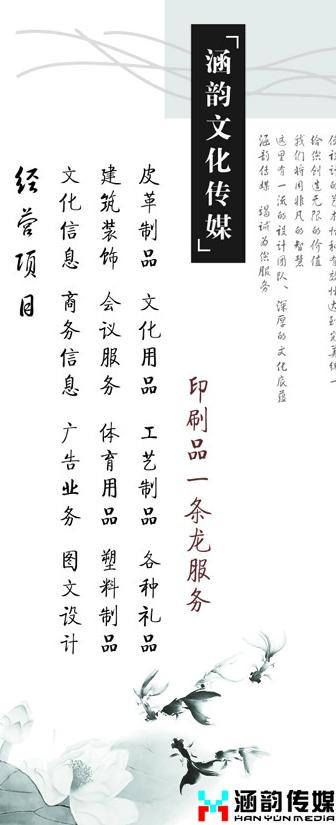 「涵韵文化传媒」
给您创造无限的价值
我们将用非凡的智慧
这里有一流的设计团队、深厚的文化底蕴
涵韵传媒 竭诚为您服务
印刷品一条龙服务
皮革制品 文化用品 工艺制品 各种礼品
建筑装饰 会议服务 体育用品 塑料制品
文化信息 商务信息 广告业务 图文设计
经营项目
涵韵传媒
HANYUNMEDIA